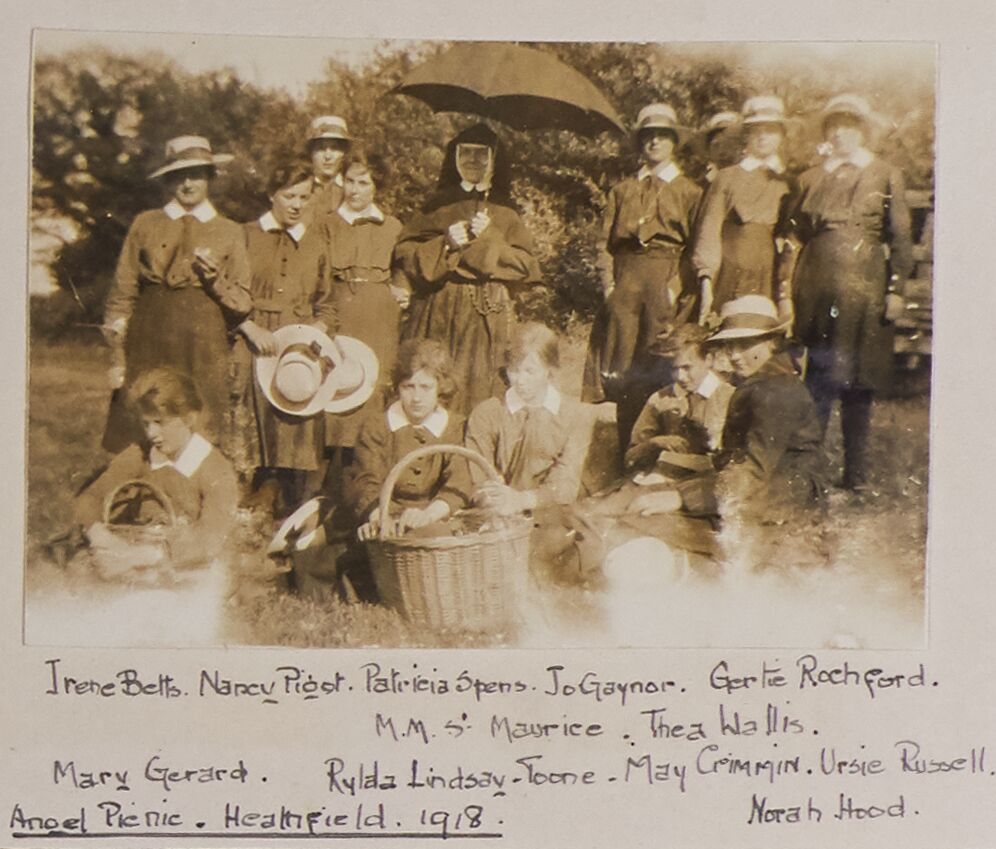 Irene Betts. Nancy Pigot. Patricia Spens. Jo Gaynor. Gertie Rochford.
M.M. St Maurice. Thea Wallis.
Mary Gerard. Rylda Lindsay-Toone. May Crimmin. Ursie Russell.
Norah Hood.
Angel Picnic. Heathfield. 1918.